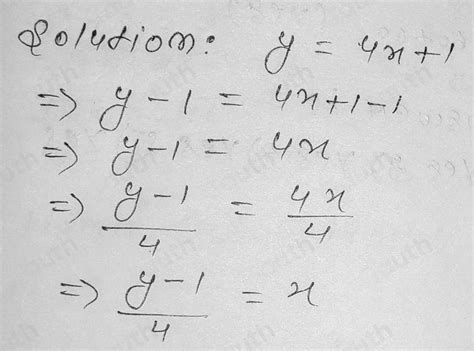 Solution: y = 4x+1
=> y-1 = 4x+1-1
=> y-1 = 4x
=> y-1/4 = 4x/4
=> y-1/4 = x